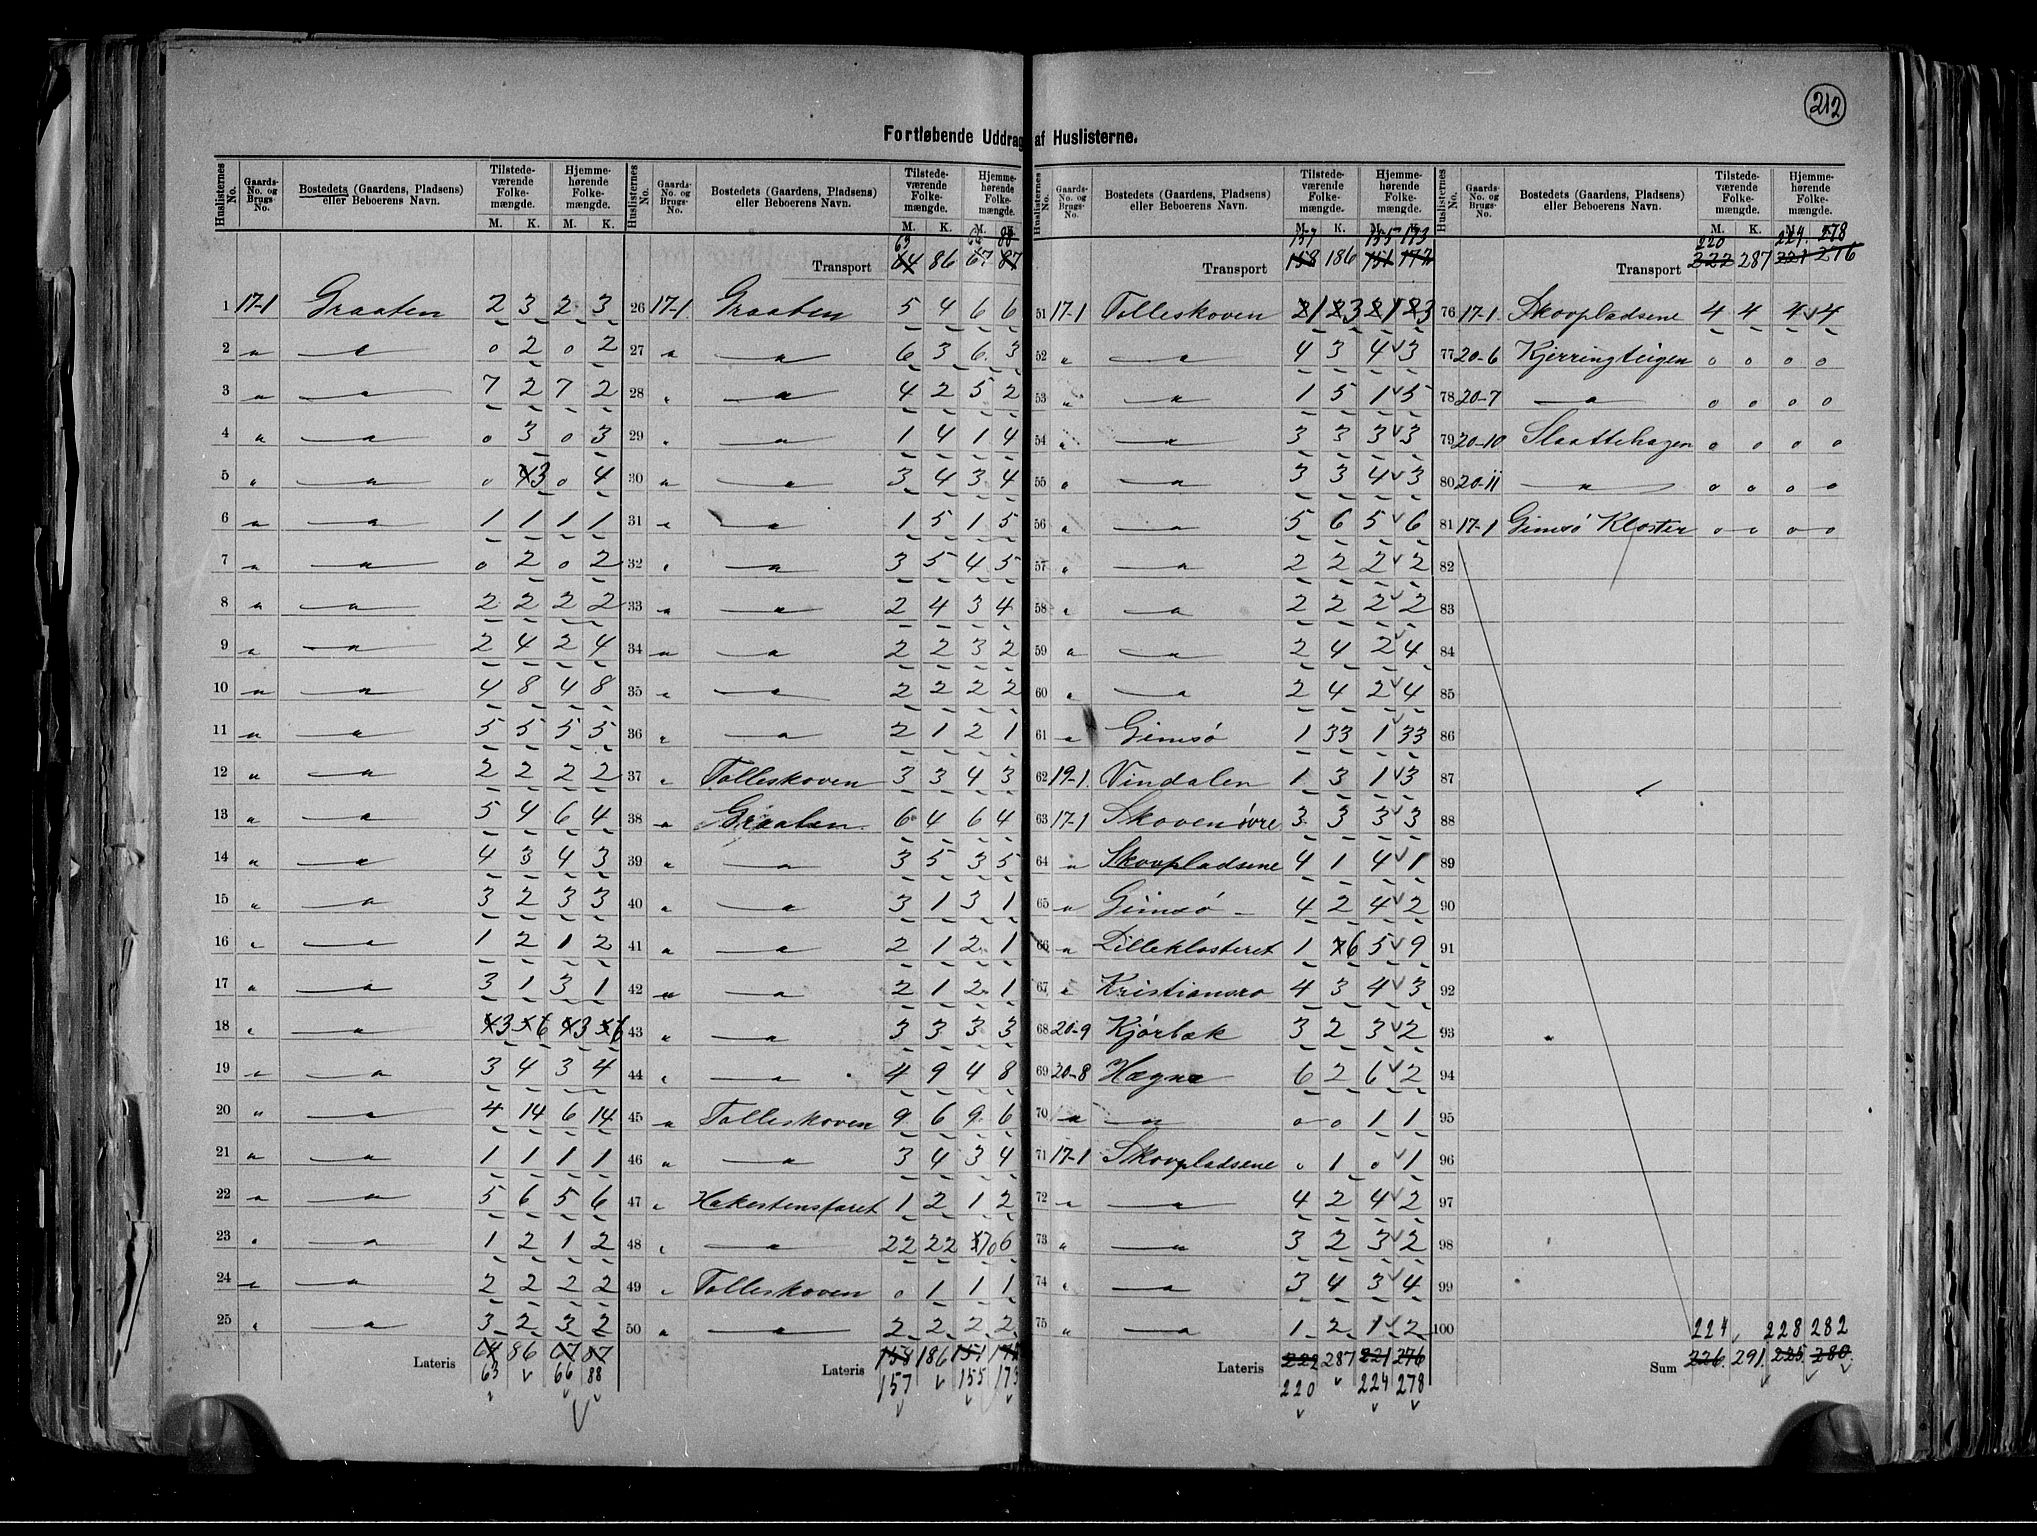 212
Fortløbende Uddrag af Huslisterne.
Huslisternes No. | Gaards-No. og Brugs-No. | Bostedets (Gaardens, Pladsens) eller Beboerens Navn. | Tilstedeværende Folkemængde. M. K. | Hjemmehørende Folkemængde. M. K.
1 17-1 Graaten 2 3 2 3
2 " — " — 0 2 0 2
3 " — " — 7 2 7 2
4 " — " — 0 3 0 3
5 " — " — 0 3 0 4
6 " — " — 1 1 1 1
7 " — " — 0 2 0 2
8 " — " — 2 2 2 2
9 " — " — 2 4 2 4
10 " — " — 4 8 4 8
11 " — " — 5 5 5 5
12 " — " — 2 2 2 2
13 " — " — 5 4 6 4
14 " — " — 4 3 4 3
15 " — " — 3 2 3 3
16 " — " — 1 2 1 2
17 " — " — 3 1 3 1
18 " — " — 3 6 3 6
19 " — " — 3 4 3 4
20 " — " — 4 14 6 14
21 " — " — 1 1 1 1
22 " — " — 5 6 5 6
23 " — " — 1 2 1 2
24 " — " — 2 2 2 2
25 " — " — 3 2 3 2
Lateris 64 86 67 87
63 66 88
Huslisternes No. | Gaards-No. og Brugs-No. | Bostedets (Gaardens, Pladsens) eller Beboerens Navn. | Tilstedeværende Folkemængde. M. K. | Hjemmehørende Folkemængde. M. K.
63 88
Transport 64 86 67 87
26 17-1 Graaten 5 4 6 6
27 " — " — 6 3 6 3
28 " — " — 4 2 5 2
29 " — " — 1 4 1 4
30 " — " — 3 4 3 4
31 " — " — 1 5 1 5
32 " — " — 3 5 4 5
33 " — " — 2 4 3 4
34 " — " — 2 2 3 2
35 " — " — 2 2 2 2
36 " — " — 2 1 2 1
37 " Tolleskoven 3 3 4 3
38 " Graaten 6 4 6 4
39 " — " — 3 5 3 5
40 " — " — 3 1 3 1
41 " — " — 2 1 2 1
42 " — " — 2 1 2 1
43 " — " — 3 3 3 3
44 " — " — 4 9 4 8
45 " Tolleskoven 9 6 9 6
46 " — " — 3 4 3 4
47 " Hakestensfaret 1 2 1 2
48 " — " — 22 22 6
49 " Tolleskoven 0 1 1 1
50 " — " — 2 2 2 2
Lateris 158 186 151 172
157 155 173
Huslisternes No. | Gaards-No. og Brugs-No. | Bostedets (Gaardens, Pladsens) eller Beboerens Navn. | Tilstedeværende Folkemængde. M. K. | Hjemmehørende Folkemængde. M. K.
157 155 173
Transport 158 186 151 172
51 17-1 Tolleskoven 1 3 1 3
52 " — " — 4 3 4 3
53 " — " — 1 5 1 5
54 " — " — 3 3 3 3
55 " — " — 3 3 4 3
56 " — " — 5 6 5 6
57 " — " — 2 2 2 2
58 " — " — 2 2 2 2
59 " — " — 2 4 2 4
60 " — " — 2 4 2 4
61 " Gimsø 1 33 1 33
62 19-1 Vindalen 1 3 1 3
63 17-1 Skoven øvre 3 3 3 3
64 " Skovpladsene 4 1 4 1
65 " Gimsø 4 2 4 2
66 " Lilleklosteret 1 6 5 9
67 " Kristiansro 4 3 4 3
68 20-9 Kjørbæk 3 2 3 2
69 20-8 Hægna 6 2 6 2
70 " — " — 0 0 1 1
71 17-1 Skovpladsene 0 1 0 1
72 " — " — 4 2 4 2
73 " — " — 3 2 3 2
74 " — " — 3 4 3 4
75 " — " — 1 2 1 2
Lateris 222 287 221 276
220 224 278
Huslisternes No. | Gaards-No. og Brugs-No. | Bostedets (Gaardens, Pladsens) eller Beboerens Navn. | Tilstedeværende Folkemængde. M. K. | Hjemmehørende Folkemængde. M. K.
220 224 278
Transport 222 287 221 276
76 17-1 Skovpladsene 4 4 4 4
77 20-6 Kjerringteigen 0 0 0 0
78 20-7 — " — 0 0 0 0
79 20-10 Slaattehagen 0 0 0 0
80 20-11 — " — 0 0 0 0
81 17-1 Gimsø Kloster 0 0 0 0
82
83
84
85
86
87
88
89
90
91
92
93
94
95
96
97
98
99
100
224 228 282
Sum 226 291 225 280